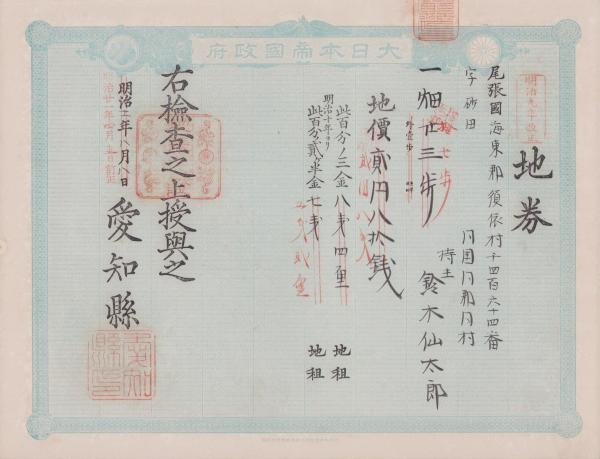 大日本帝國政府
地券
明治九年改正
尾張國海東郡須依村千四百六十四番
字砂田
同国同郡同村
持主 鈴木仙太郎
一畑廿三歩
七歩
地價貳円八拾銭
此百分ノ三金八銭四厘 地租
明治十年ヨリ
此百分ノ貳ヶ半金七銭 地租
右檢査之上授與之
明治十二年八月八日
愛知縣
愛知縣印